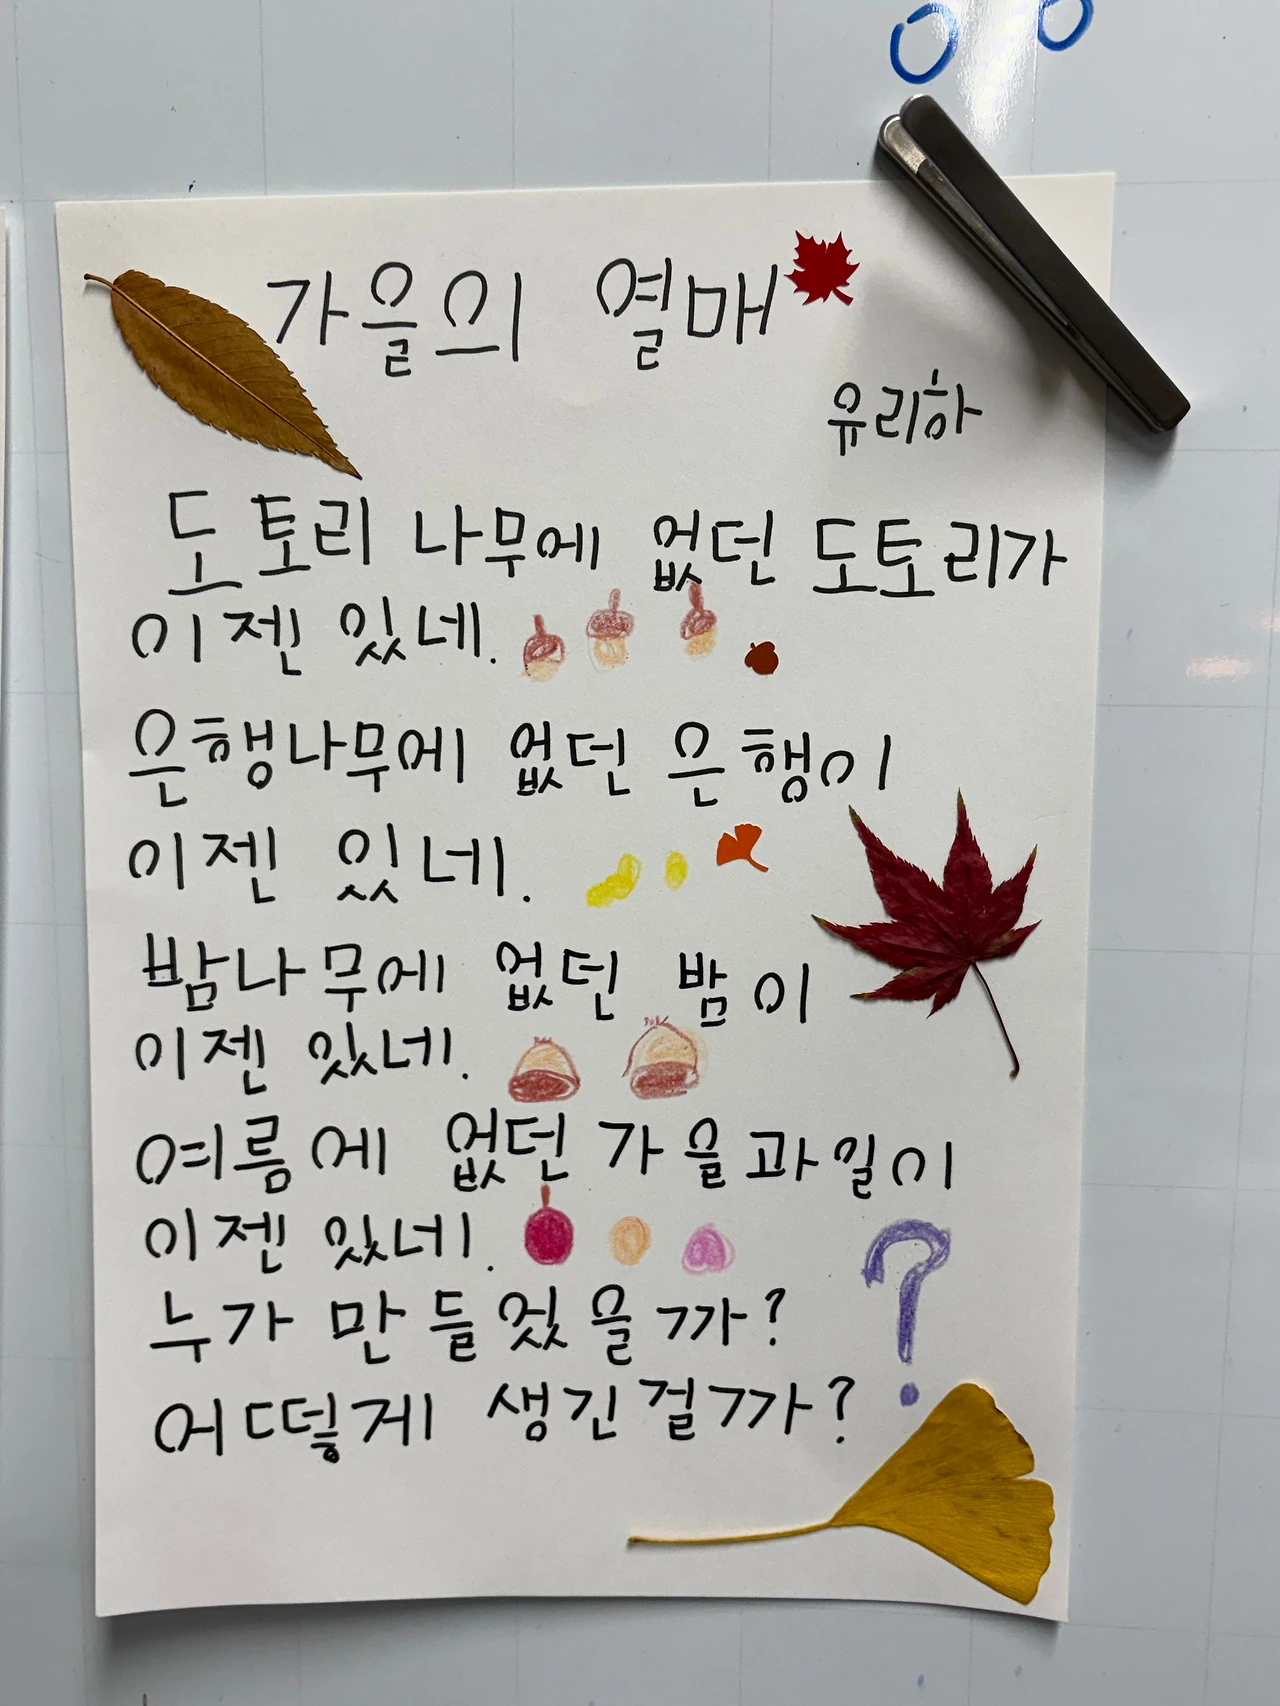 가을의 열매
유리하
도토리 나무에 없던 도토리가
이젠 있네.
은행나무에 없던 은행이
이젠 있네.
밤나무에 없던 밤이
이젠 있네.
여름에 없던 가을과일이
이젠 있네.
누가 만들었을까?
어떻게 생긴걸까?
?